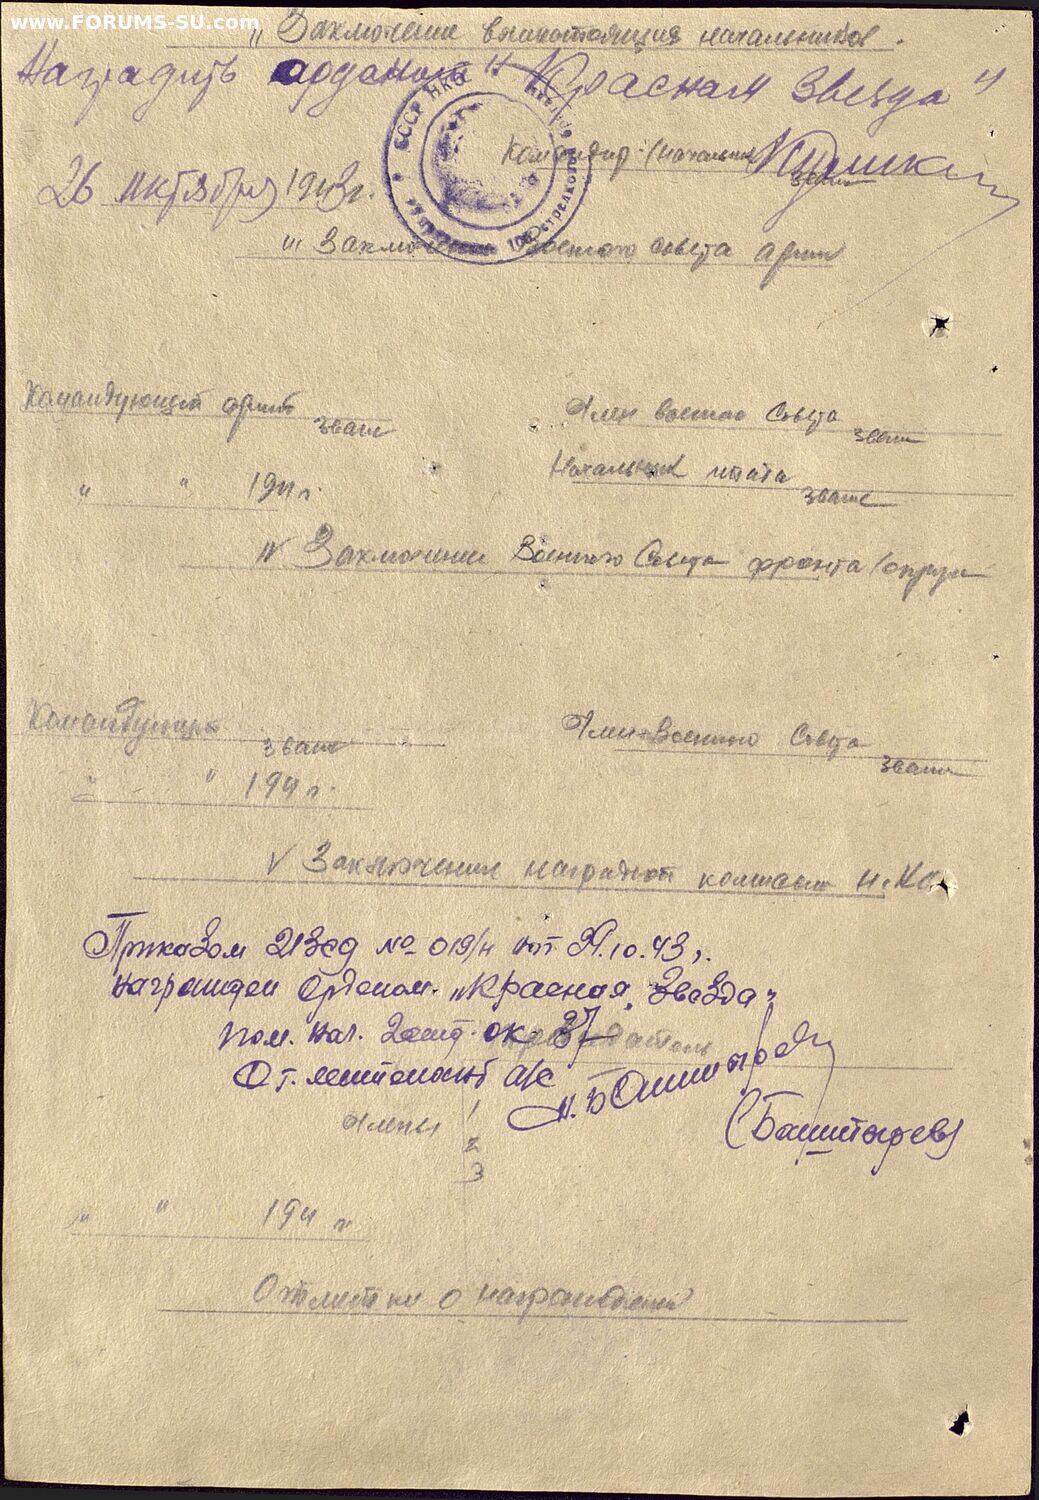 www.FORUMS-SU.com
" Заключение вышестоящих начальников.
Наградить орденом "Красная Звезда"
Командир (начальник)
звание
26 октября 1943 г.
III Заключение Военного Совета армии
Командующий армией
звание
Член Военного Совета
звание
Начальник штаба
звание
" " 194 г.
IV Заключение Военного Совета фронта (округа
Командующий
звание
Член Военного Совета
звание
" " 194 г.
V Заключение наградной комиссии НКО
Приказом 213сд № 019/н от 10.43 г.
награжден Орденом "Красная Звезда"
пом. нач. 2 отд. ок.
Председатель
Ст. лейтенант а/с
(Баштырев)
Члены 1
2
3
" " 194 г
Отметки о награждении